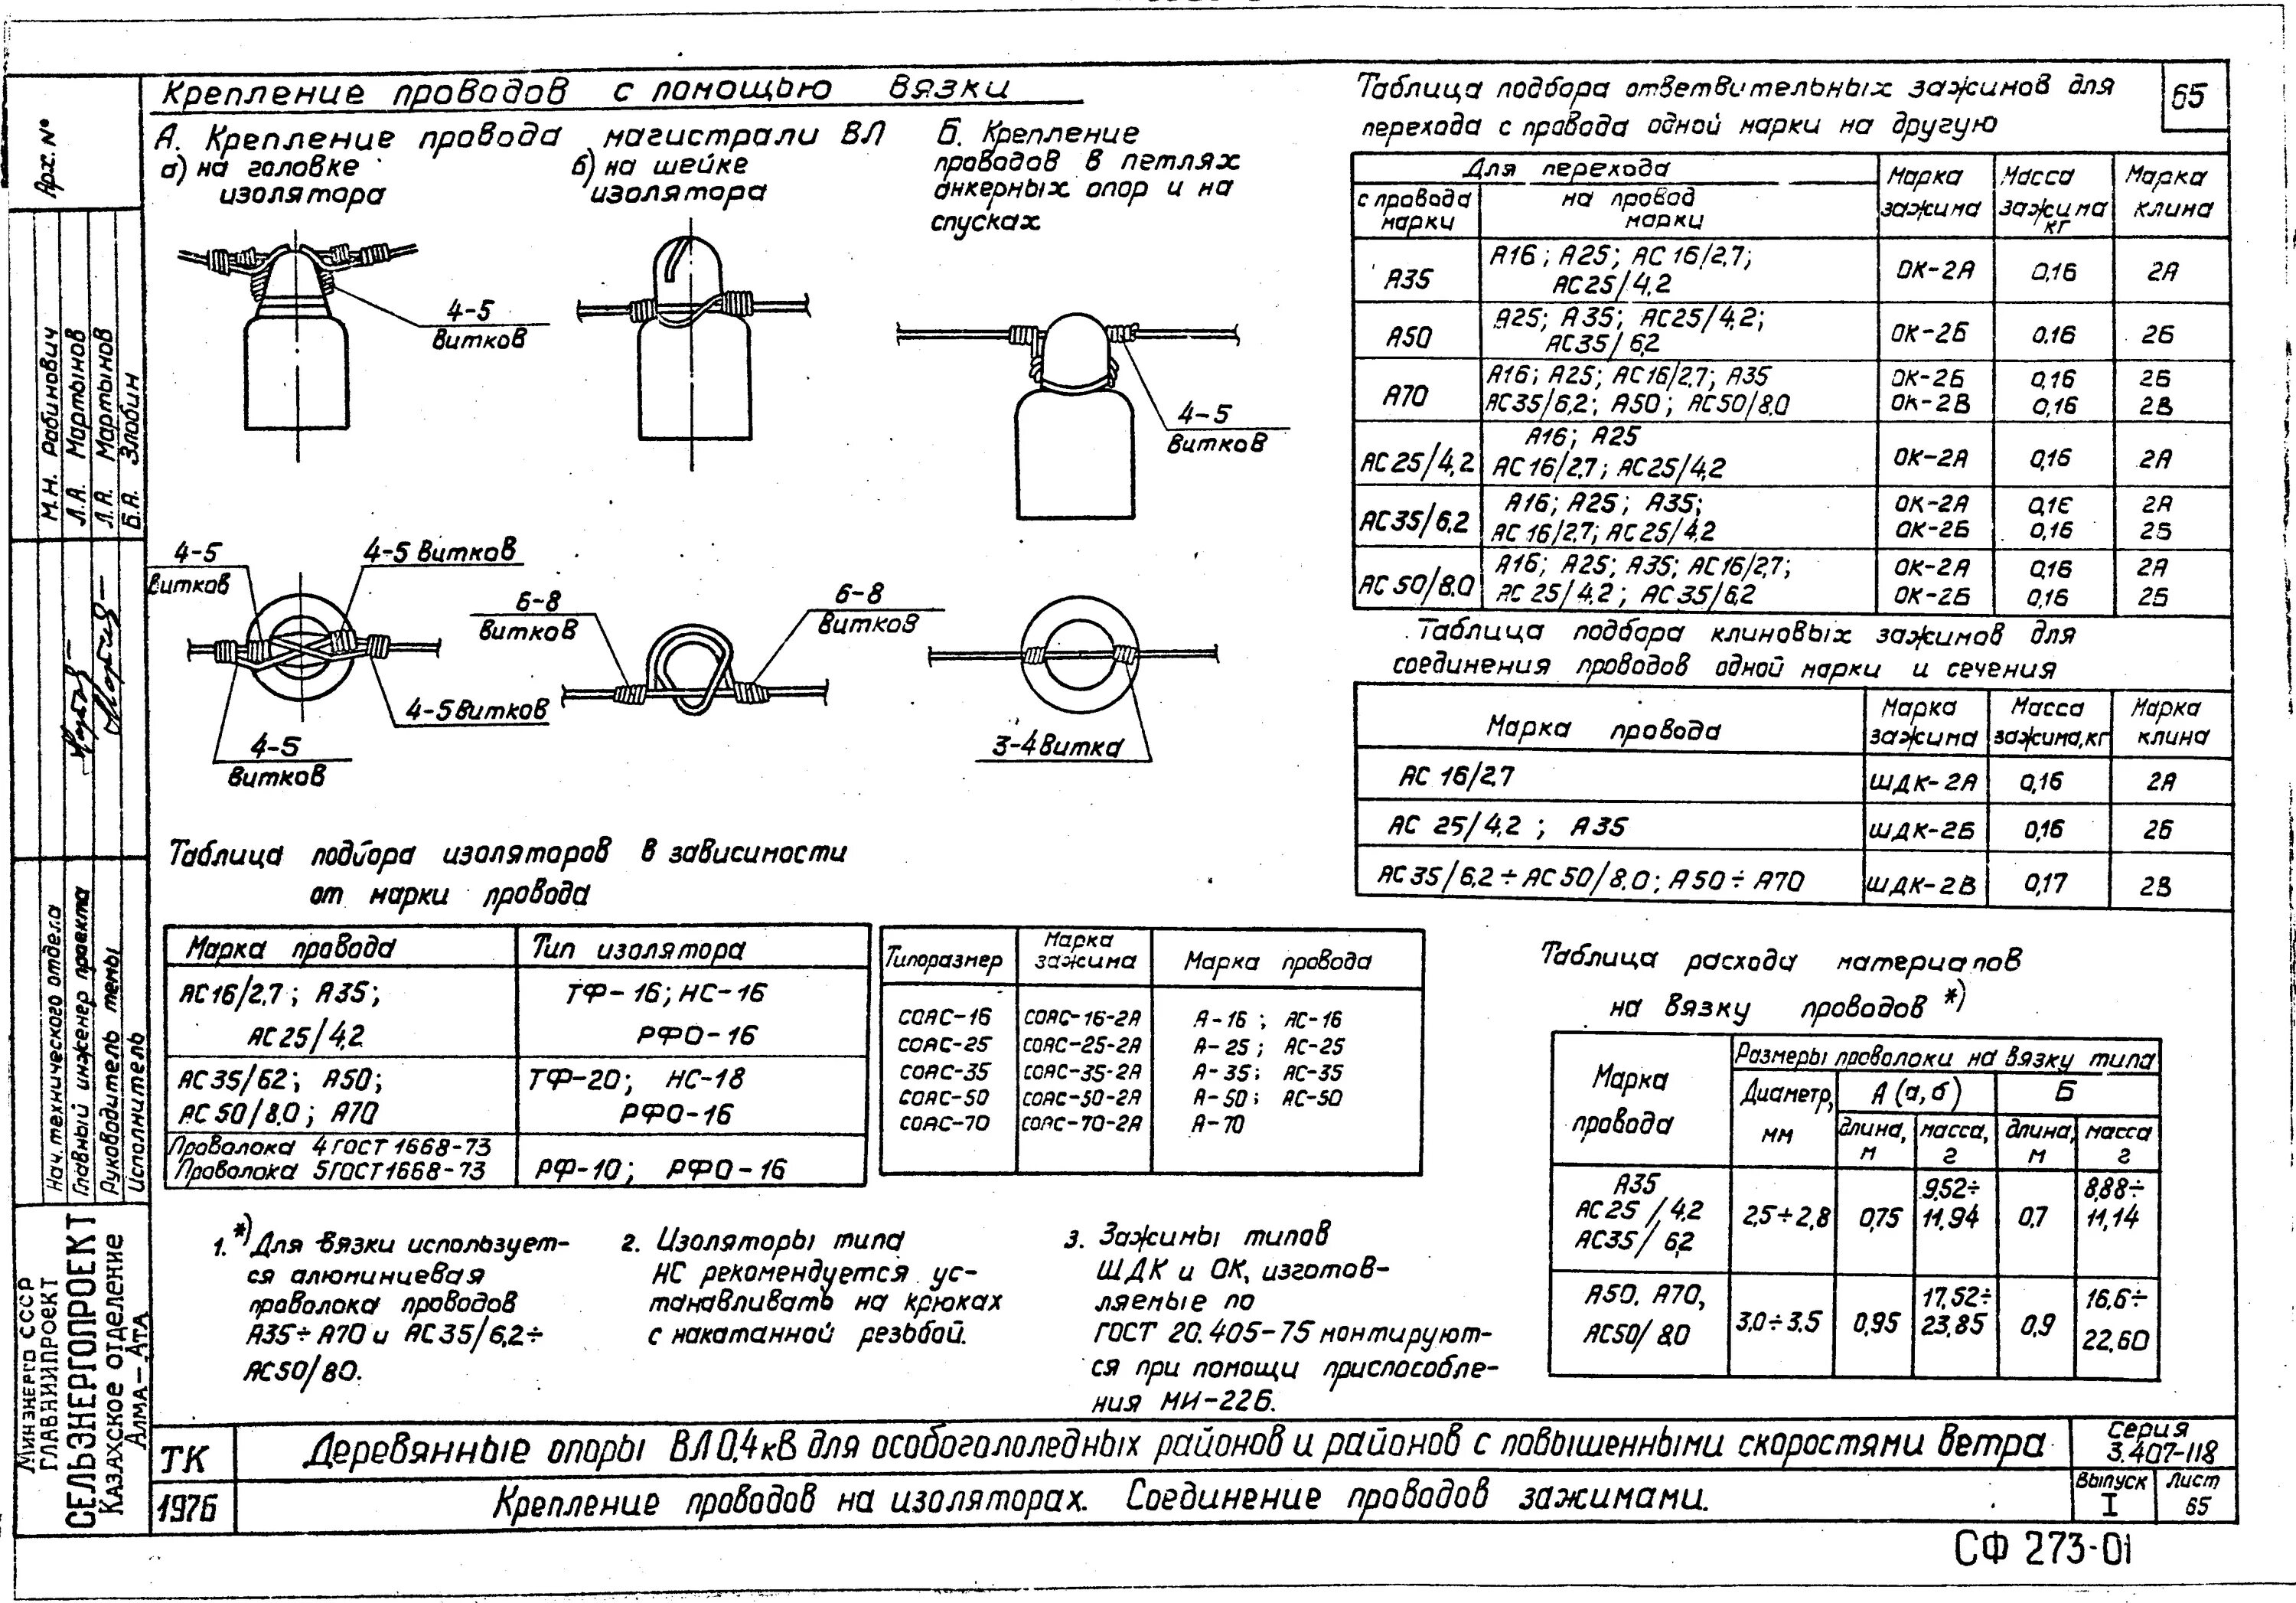 Крепление проводов с помощью вязки
А. Крепление провода магистрали ВЛ
а) на головке
изолятора
б) на шейке
изолятора
Б. Крепление
проводов в петлях
анкерных опор и на
спусках
4-5
витков
4-5
витков
4-5
витков
4-5 витков
4-5 витков
4-5
витков
6-8
витков
6-8
витков
3-4 витка
Таблица подбора ответвительных зажимов для
перехода с провода одной марки на другую
65
Для перехода
с провода марки | на провод марки | Марка зажима | Масса зажима кг | Марка клина
А35 | А16; А25; АС 16/2,7; АС25/4,2 | ОК-2А | 0,16 | 2А
А50 | А25; А35; АС25/4,2; АС35/6,2 | ОК-2Б | 0,16 | 2Б
А70 | А16; А25; АС16/2,7; А35 | ОК-2Б | 0,16 | 2Б
АС35/6,2; А50; АС50/8,0 | ОК-2В | 0,16 | 2В
АС25/4,2 | А16; А25 АС16/2,7; АС25/4,2 | ОК-2А | 0,16 | 2А
АС35/6,2 | А16; А25; А35; | ОК-2А | 0,16 | 2А
АС 16/2,7; АС25/4,2 | ОК-2Б | 0,16 | 2Б
АС 50/8,0 | А16; А25; А35; АС16/2,7; | ОК-2А | 0,16 | 2А
АС 25/4,2; АС35/6,2 | ОК-2Б | 0,16 | 2Б
Таблица подбора клиновых зажимов для
соединения проводов одной марки и сечения
Марка провода | Марка зажима | Масса зажима, кг | Марка клина
АС 16/2,7 | ШДК-2А | 0,16 | 2А
АС 25/4,2; А35 | ШДК-2Б | 0,16 | 2Б
АС35/6,2÷АС50/8,0; А50÷А70 | ШДК-2В | 0,17 | 2В
Таблица подбора изоляторов в зависимости
от марки провода
Марка провода | Тип изолятора
АС16/2,7; А35; | ТФ-16; НС-16
АС25/4,2 | РФО-16
АС35/62; А50; | ТФ-20; НС-18
АС50/8,0; А70 | РФО-16
Проволока 4 ГОСТ 1668-73
Проволока 5 ГОСТ 1668-73 | РФ-10; РФО-16
Типоразмер | Марка зажима | Марка провода
СОАС-16 | СОАС-16-2А | А-16; АС-16
СОАС-25 | СОАС-25-2А | А-25; АС-25
СОАС-35 | СОАС-35-2А | А-35; АС-35
СОАС-50 | СОАС-50-2А | А-50; АС-50
СОАС-70 | СОАС-70-2А | А-70
Таблица расхода материалов
на вязку проводов *)
Марка провода | Размеры проволоки на вязку типа
Диаметр, мм | А (а, б) | Б
длина, м | масса, г | длина, м | масса г
А35 АС25/4,2 АС35/6,2 | 2,5÷2,8 | 0,75 | 9,52÷11,94 | 0,7 | 8,88÷11,14
А50, А70, АС50/8,0 | 3,0÷3,5 | 0,95 | 17,52÷23,85 | 0,9 | 16,6÷22,60
1. *) Для вязки использует-
ся алюминиевая
проволока проводов
А35÷А70 и АС35/6,2÷
АС50/8,0.
2. Изоляторы типа
НС рекомендуется ус-
танавливать на крюках
с накатанной резьбой.
3. Зажимы типов
ШДК и ОК, изготов-
ляемые по
ГОСТ 20.405-75 монтируют-
ся при помощи приспособле-
ния МИ-22Б.
ТК
1976
Деревянные опоры ВЛ 0,4 кВ для особогололедных районов и районов с повышенными скоростями ветра
Крепление проводов на изоляторах. Соединение проводов зажимами.
Серия
3.407-118
Выпуск
I
Лист
65
СФ 273-01
Арх. №
М.Н. Рабинович
Л.А. Мартынов
Л.А. Мартынов
Б.А. Злобин
Нач. технического отдела
Главный инженер проекта
Руководитель темы
Исполнитель
Минэнерго СССР
ГЛАВНИИПРОЕКТ
СЕЛЬЭНЕРГОПРОЕКТ
Казахское отделение
Алма-Ата